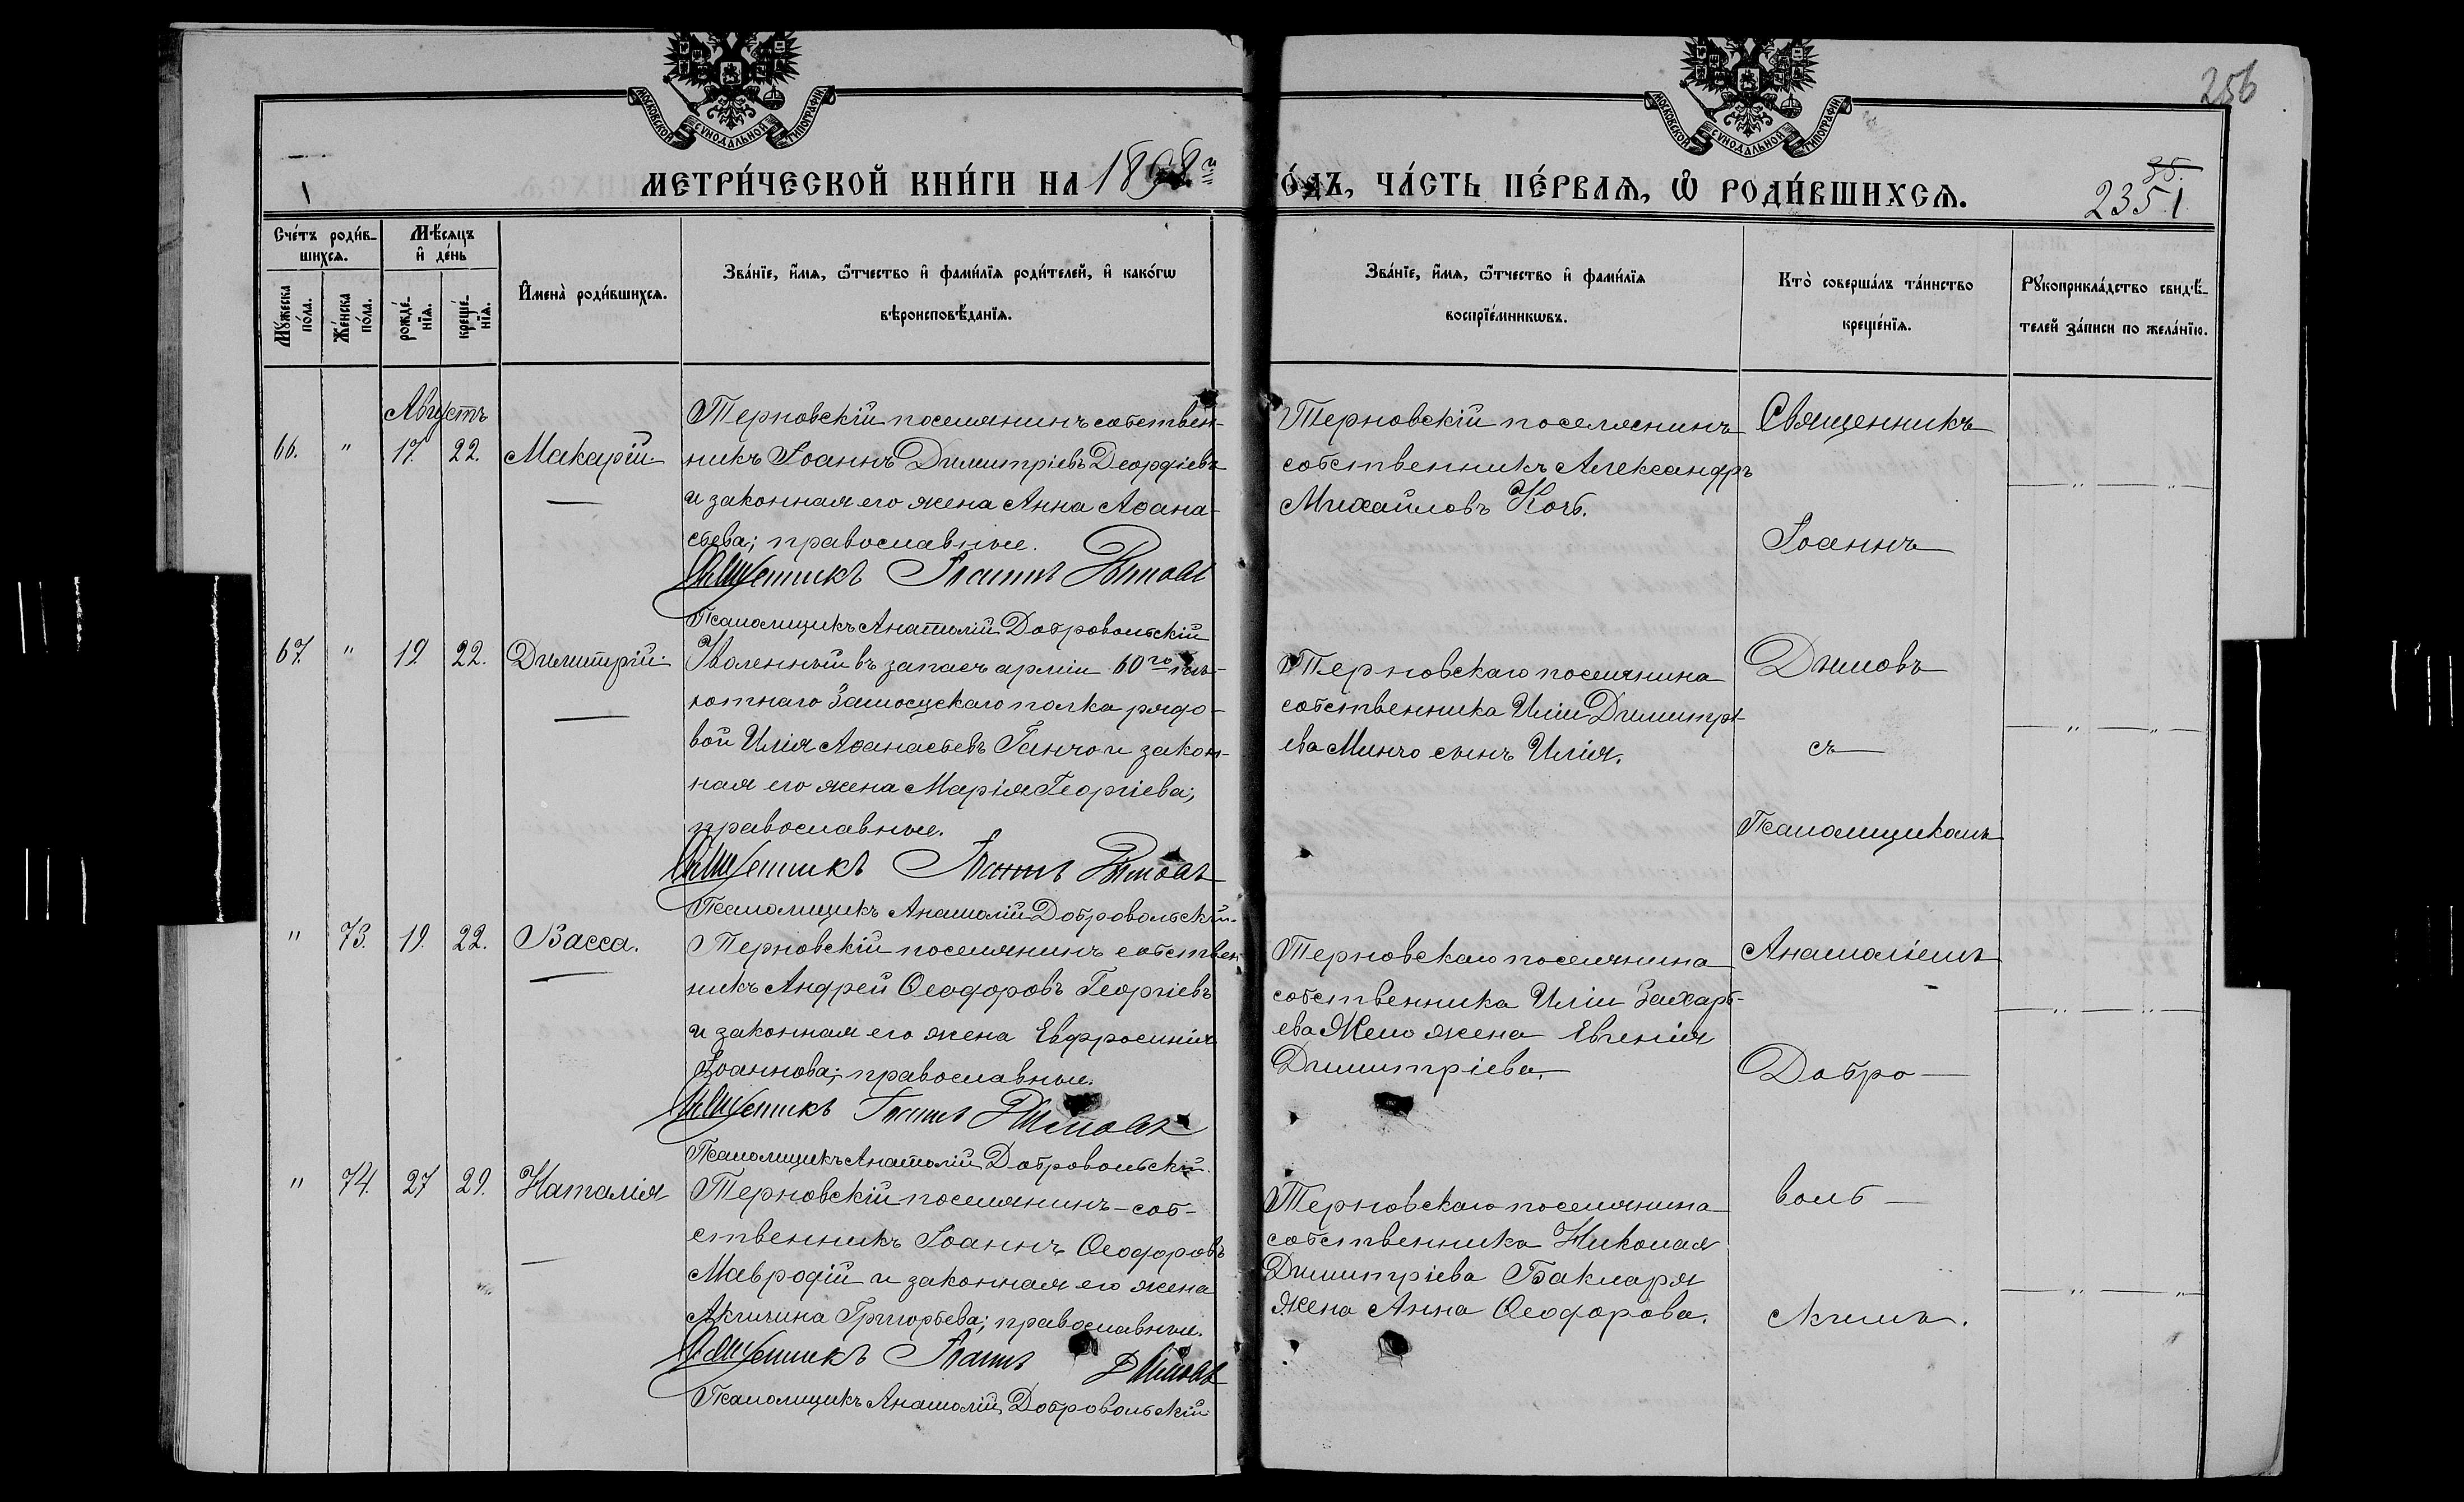 МОСКОВСКОЙ СѴНОДАЛЬНОЙ ТИПОГРАФІИ
МОСКОВСКОЙ СѴНОДАЛЬНОЙ ТИПОГРАФІИ
256
МЕТРИ́ЧЕСКОЙ КНИ́ГИ НА 1898 го́дъ, ЧА́СТЬ ПЕ́РВАѦ, Ѿ РОДИ́ВШИХСѦ.
35.
2351
Сче́тъ роди́в-
шихсѧ.
Мѣ́сѧцъ
и҆ де́нь
Мꙋ́жеска по́ла.
Же́нска по́ла.
рожде́-нїѧ.
креще́-нїѧ.
И҆мена̀ роди́вшихсѧ.
Зва́нїе, и҆́мѧ, ѻ҆́тчество и҆ фами́лїѧ роди́телей, и҆ како́гѡ
вѣроисповѣ́данїѧ.
Зва́нїе, и҆́мѧ, ѻ҆́тчество и҆ фами́лїѧ
воспрїе́мникѡвъ.
Кто̀ соверша́лъ та́инство
креще́нїѧ.
Рꙋкоприкла́дство свидѣ́-
телей за́писи по жела́нїю.
Августъ
66. " 17. 22. Макарій
Терновскій поселянинъ собствен-
никъ Іоаннъ Димитріевъ Деордіевъ
и законная его жена Анна Аѳана-
сьева; православные.
Священникъ Іоаннъ Димовъ
Псаломщикъ Анатолій Добровольскій
Терновскій поселянинъ
собственникъ Александръ
Михайловъ Кочь.
67. " 19. 22. Димитрій
Уволенный въ запасъ арміи 60го пѣ-
хотнаго Замосцскаго полка рядо-
вой Илія Аѳанасьевъ Ганчо и закон-
ная его жена Марія Георгіева;
православные.
Священникъ Іоаннъ Димовъ
Псаломщикъ Анатолій Добровольскій
Терновскаго поселянина
собственника Иліи Димитрі-
ева Минчо сынъ Илія.
" 73. 19. 22. Васса.
Терновскій поселянинъ собствен
никъ Андрей Ѳеодоровъ Георгіевъ
и законная его жена Евфросинія
Іоаннова; православные.
Священникъ Іоаннъ Димовъ
Псаломщикъ Анатолій Добровольскій
Терновскаго поселянина
собственника Иліи Захарь-
ева Жело жена Евгенія
Димитріева.
" 74. 27 29. Наталія
Терновскій поселянинъ-соб-
ственникъ Іоаннъ Ѳеодоровъ
Мавродій и законная его жена
Акилина Григорьева; православные.
Священникъ Іоаннъ Димовъ
Псаломщикъ Анатолій Добровольскій
Терновскаго поселянина
собственника Николая
Димитріева Бакларя
жена Анна Ѳеодорова.
Священникъ
Іоаннъ
Димовъ
съ
Псаломщикомъ
Анатоліемъ
Добро-
воль-
скимъ.